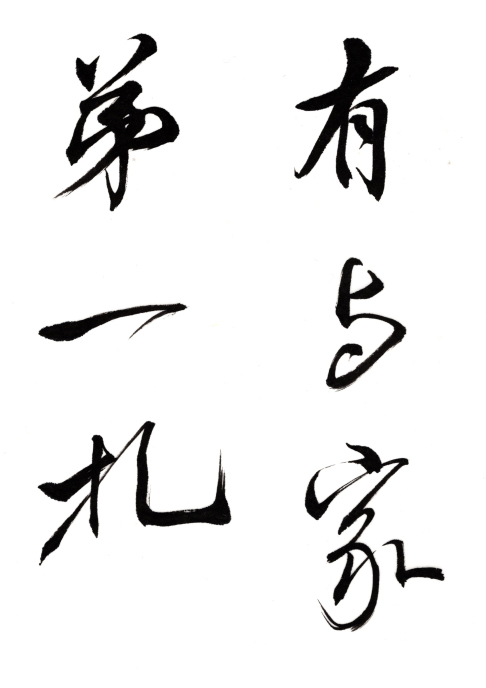 有与家
弟一札